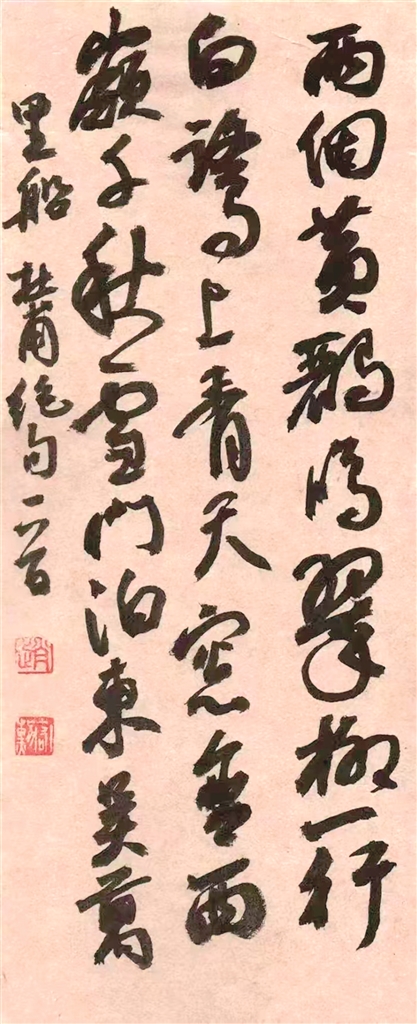 兩個黃鸝鳴翠柳一行
白鷺上青天窓含西
嶺千秋雪門泊東吴萬
里船 杜甫絕句一首